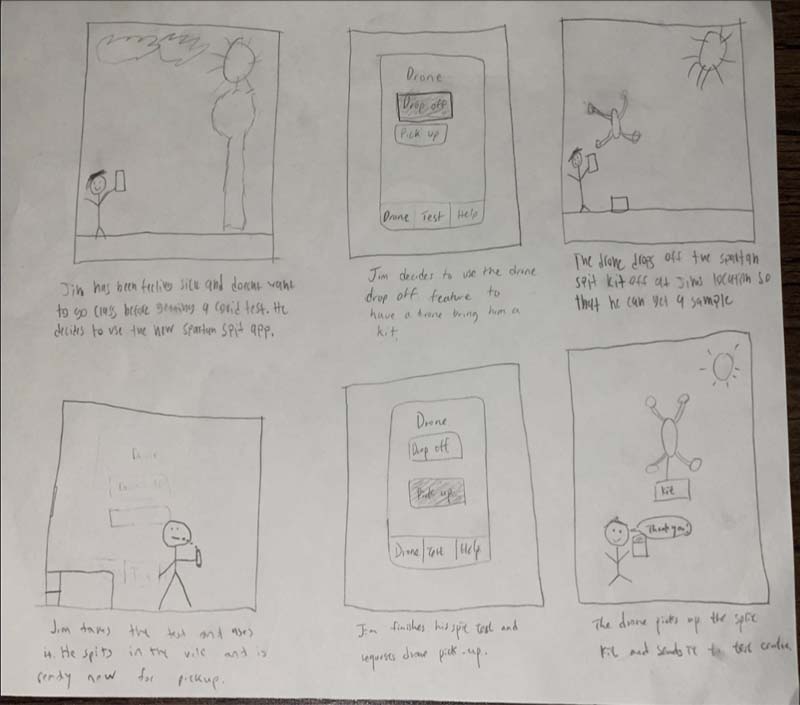 Jim has been feeling sick and doesnt want
to go class before getting a covid test. He
decides to use the new spartan spit app.
Drone
Drop off
Pick up
Drone Test Help
Jim decides to use the drone
drop off feature to
have a drone bring him a
kit.
The drone drops off the spartan
spit kit off at Jims location so
that he can get a sample
Jim takes the test and uses
it. He spits in the vile and is
ready now for pickup.
Drone
Drop off
Pick up
Drone Test Help
Jim finishes his spit test and
requests drone pick-up.
Kit
Thank you!
The drone picks up the spit
kit and sends it to test center.